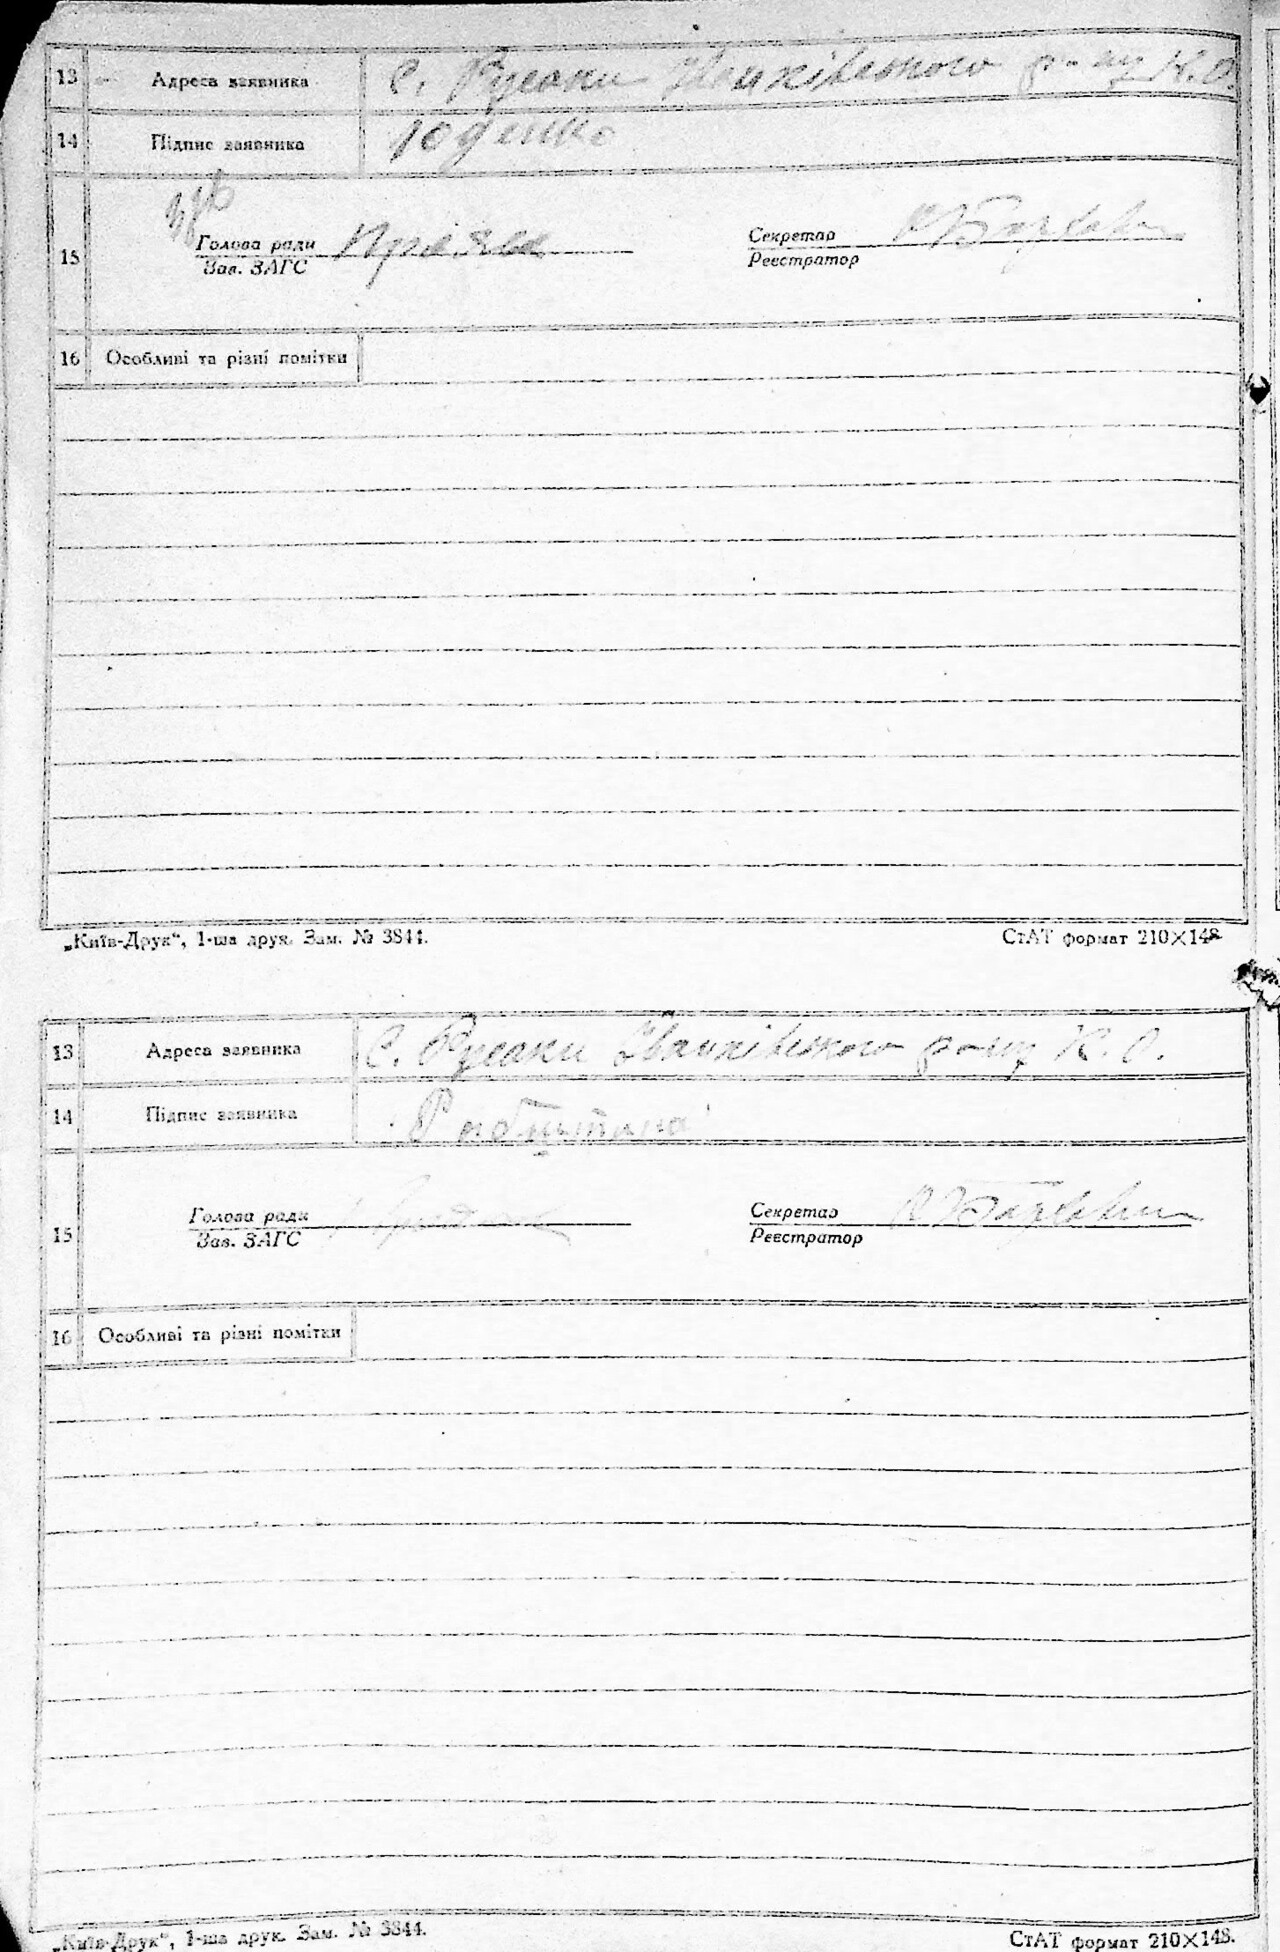 13 Адреса заявника С. Русаки Іванківського р-ну К. О.
14 Підпис заявника Юденко
15 Голова ради Секретар
Зав. ЗАГС Реєстратор
16 Особливі та різні помітки
„Київ-Друк“, 1-ша друк. Зам. № 3844. СтАТ формат 210×148
13 Адреса заявника С. Русаки Іванківського р-ну К. О.
14 Підпис заявника
15 Голова ради Секретар
Зав. ЗАГС Реєстратор
16 Особливі та різні помітки
„Київ-Друк“, 1-ша друк. Зам. № 3844. СтАТ формат 210×148.